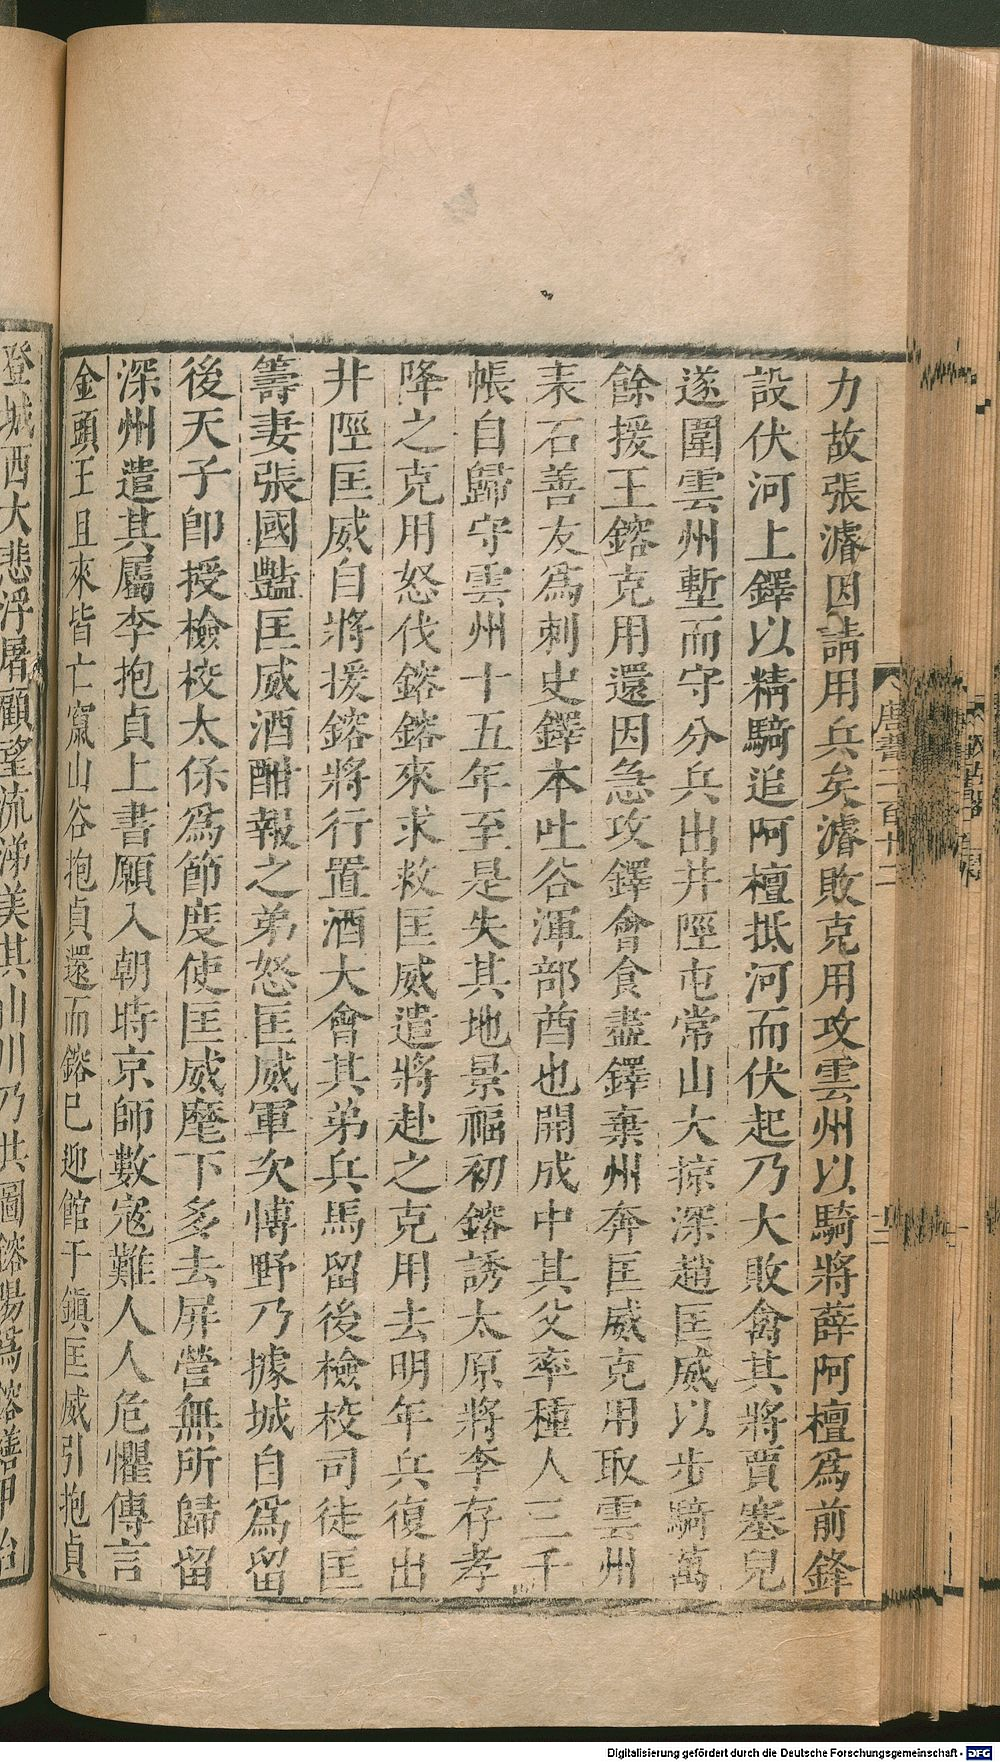 力故張濬因請用兵矣濬敗克用攻雲州以騎將薛阿檀爲前鋒
設伏河上鐸以精騎追阿檀抵河而伏起乃大敗禽其將賈塞兒
遂圍雲州塹而守分兵出井陘屯常山大掠深趙匡威以步騎萬
餘援王鎔克用還因急攻鐸會食盡鐸棄州奔匡威克用取雲州
表石善友爲刺史鐸本吐谷渾部酋也開成中其父率種人三千
帳自歸守雲州十五年至是失其地景福初鎔誘太原將李存孝
降之克用怒伐鎔鎔來求救匡威遣將赴之克用去明年兵復出
井陘匡威自將援鎔將行置酒大會其弟兵馬留後檢校司徒匡
籌妻張國豔匡威酒酣報之弟怒匡威軍次博野乃據城自爲留
後天子卽授檢校太保爲節度使匡威麾下多去屏營無所歸留
深州遣其屬李抱貞上書願入朝時京師數寇難人人危懼傳言
金頭王且來皆亡竄山谷抱貞還而鎔已迎館于鎮匡威引抱貞
登城西大悲浮屠顧望流涕美其山川乃共圖鎔陽爲鎔繕甲治
唐書二百十二
Digitalisierung gefördert durch die Deutsche Forschungsgemeinschaft - DFG